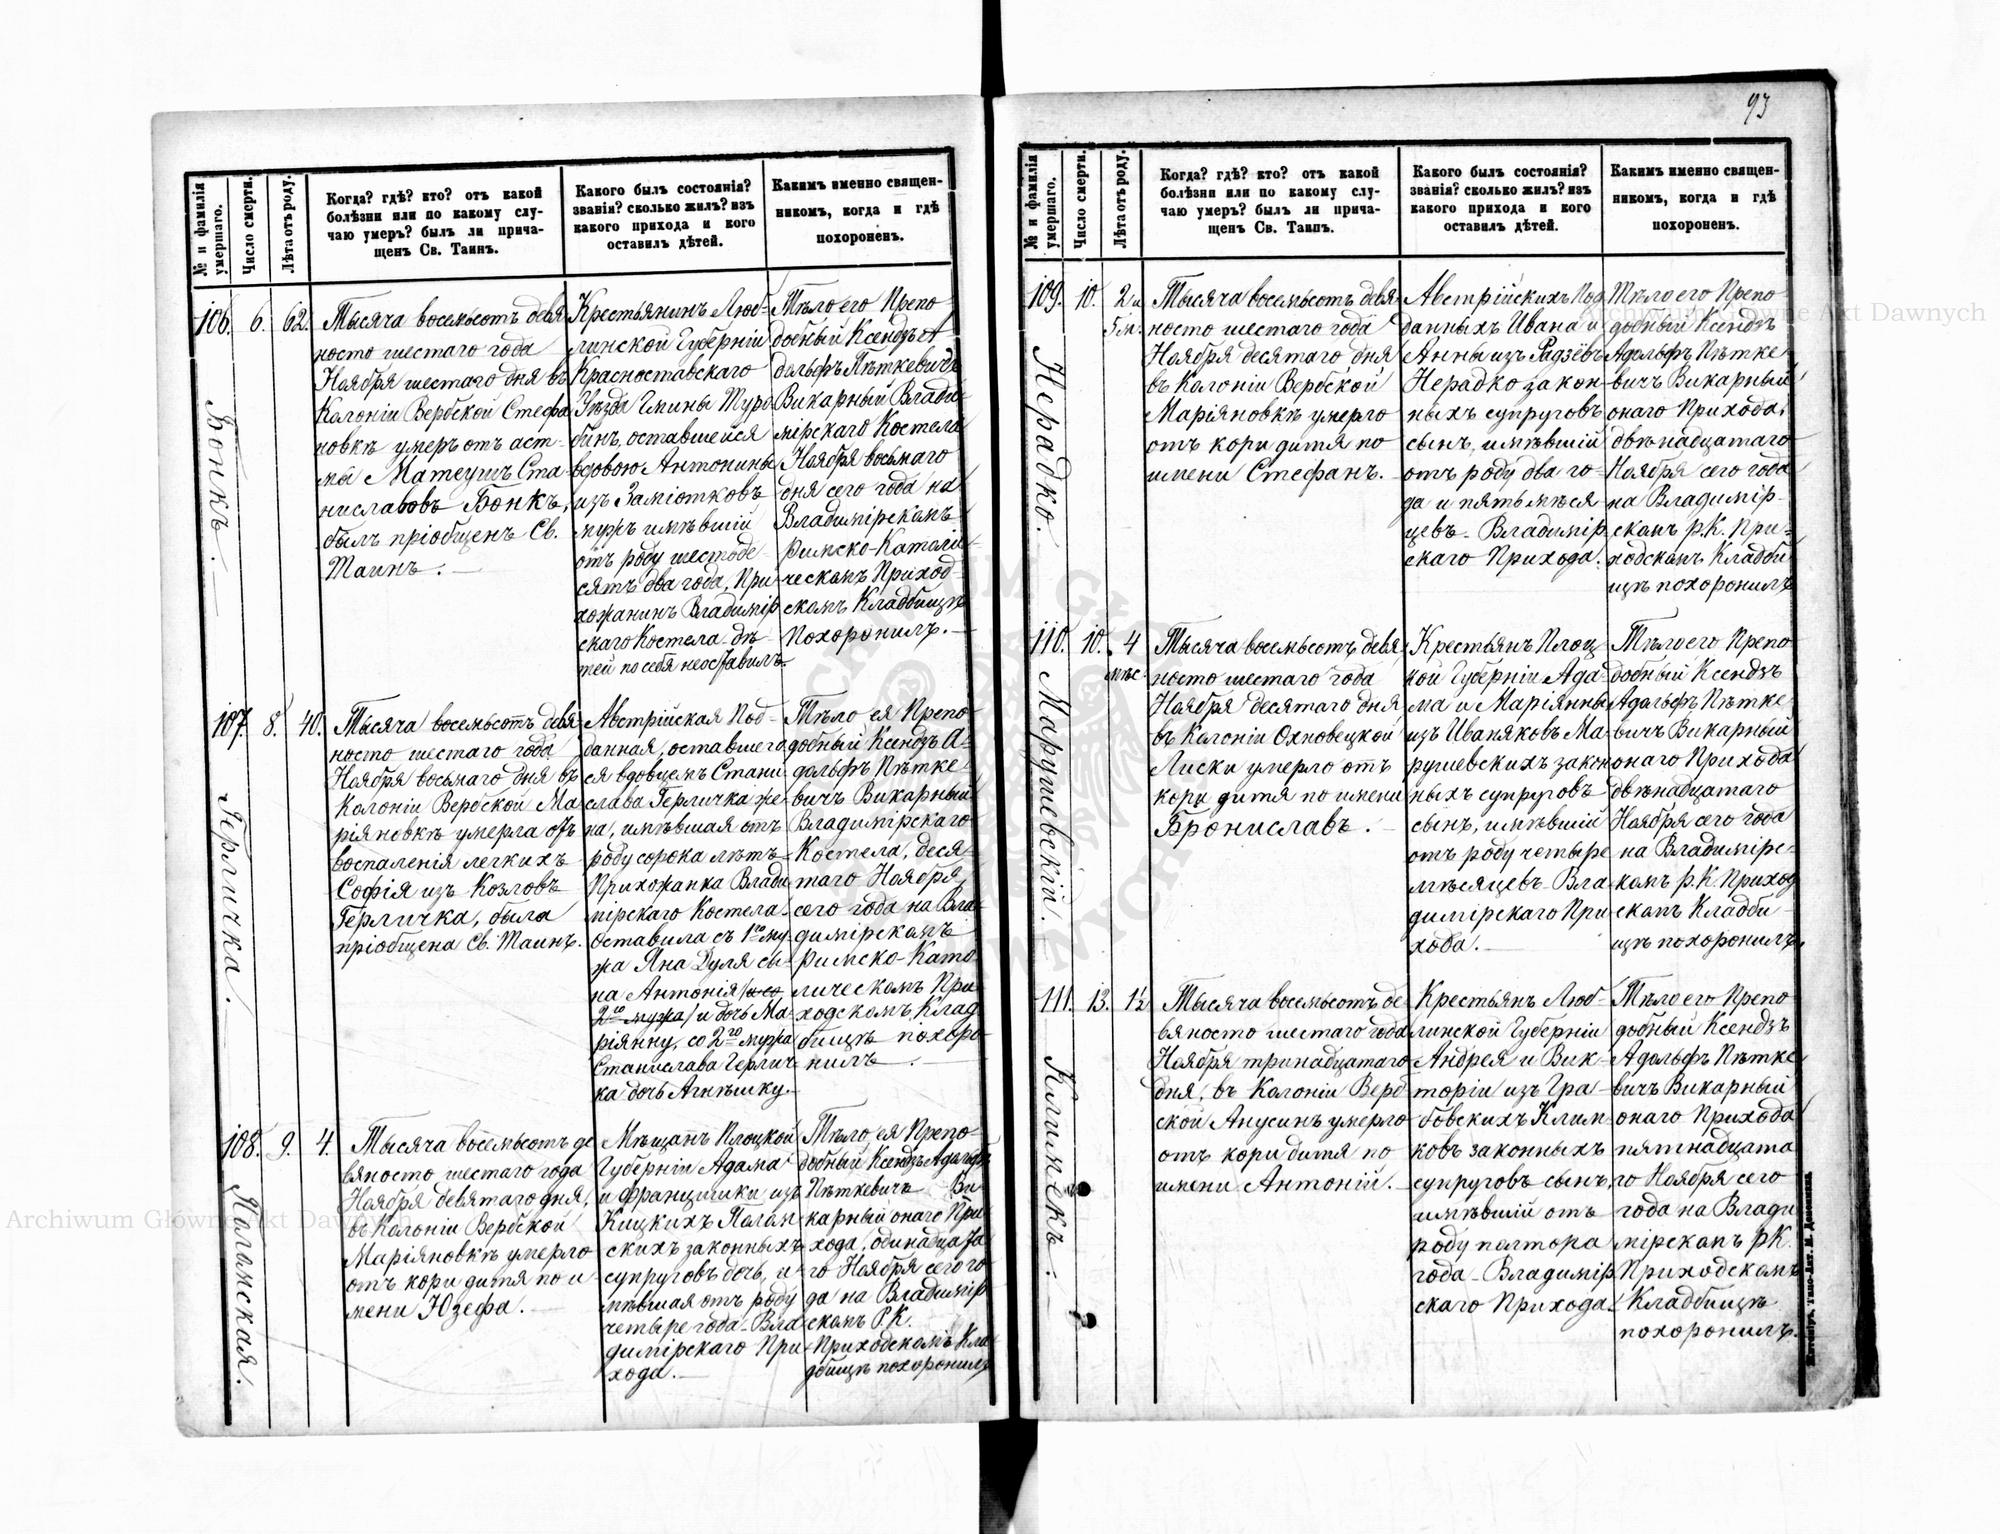 93
№ и фамилія умершаго.
Число смерти.
Лѣта отъ роду.
Когда? гдѣ? кто? отъ какой
болѣзни или по какому слу-
чаю умеръ? былъ ли прича-
щенъ Св. Таинъ.
Какого былъ состоянія?
званія? сколько жилъ? изъ
какого прихода и кого
оставилъ дѣтей.
Какимъ именно священ-
никомъ, когда и гдѣ
похороненъ.
106.
Бонкъ.
6.
62.
Тысяча восемьсотъ девя
носто шестаго года
Ноября шестаго дня въ
Колоніи Вербской Стефа
новкѣ умеръ отъ аст-
мы Матеушъ Ста
ниславовъ Бонкъ,
былъ пріобщенъ Св.
Таинъ.
Крестьянинъ Люб-
линской Губерніи
Красноставскаго
Уѣзда Гмины Туро
бинъ, оставшейся
вдовою Антонины
изъ Замютковъ
мужъ имѣвшій
отъ роду шестьде
сятъ два года, При
хожанинъ Владимір
скаго Костела дѣ-
тей по себя неоставилъ.
Тѣло его Препо
добный Ксендзъ А
дольфъ Пѣткевичъ
Викарный Влади-
мірскаго Костела
Ноября восьмаго
дня сего года на
Владимірскомъ
Римско-Катали
ческомъ Приход-
скомъ Кладбищѣ
Похоронилъ.
107.
Герличка.
8.
40.
Тысяча восемьсотъ девя
носто шестаго года
Ноября восьмаго дня въ
Колоніи Вербской Ма
ріяновкѣ умерла отъ
воспаленія легкихъ
Софія изъ Козловъ
Герличка, была
пріобщена Св. Таинъ.
Австрійская Под-
данная, оставшего
ся вдовцемъ Стани
слава Герличка же-
на, имѣвшая отъ
роду сорока лѣтъ
Прихожанка Влади
мірскаго Костела.
Оставила съ 1го му
жа Яна Дуля сы-
на Антонія /исо
2го мужа/ и дочь Ма-
ріянну, со 2го мужа
Станислава Герлич-
ка дочь Агнѣшку.
Тѣло ея Препо
добный Ксендзъ А-
дольфъ Пѣтке-
вичъ Викарный
Владимірскаго
Костела, деся-
таго Ноября
сего года на Вла-
димірскомъ
Римско-Като
лическомъ При
ходскомъ Клад
бищѣ похоро
нилъ.
108.
Паланская.
9.
4.
Тысяча восемьсотъ де
вяносто шестаго года
Ноября девятаго дня,
въ Колоніи Вербской
Маріяновкѣ умерло
отъ кори дитя по и
мени Юзефа.
Мѣщанъ Плоцкой
Губерніи Адама
и Францишки изъ
Кицкихъ Палан
скихъ законныхъ
супруговъ дочь, и-
мѣвшая отъ роду
четыре года Вла
димірскаго При
хода.
Тѣло ея Препо-
добный Ксендзъ Адольфъ
Пѣткевичъ Ви
карный онаго При
хода, одинадцата
го Ноября сего го
да на Владимір
скомъ Р.К.
Приходскомъ Кла
дбищѣ похоронилъ
№ и фамилія умершаго.
Число смерти.
Лѣта отъ роду.
Когда? гдѣ? кто? отъ какой
болѣзни или по какому слу-
чаю умеръ? былъ ли прича-
щенъ Св. Таинъ.
Какого былъ состоянія?
званія? сколько жилъ? изъ
какого прихода и кого
оставилъ дѣтей.
Какимъ именно священ-
никомъ, когда и гдѣ
похороненъ.
109.
Нерадко.
10.
2 и
5 м.
Тысяча восемьсотъ девя-
носто шестаго года
Ноября десятаго дня
въ Колоніи Вербской
Маріяновкѣ умерло
отъ кори дитя по
имени Стефанъ.
Австрійскихъ Под
данныхъ Ивана и
Анны изъ Радзѣвъ
Нерадко закон-
ныхъ супруговъ
сынъ, имѣвшій
отъ роду два го-
да и пять мѣся
цевъ. Владимір
скаго Прихода.
Тѣло его Препо
добный Ксендзъ
Адольфъ Пѣтке
вичъ Викарный
онаго Прихода,
двѣнадцатаго
Ноября сего года
на Владимір-
скомъ Р.К. При-
ходскомъ Кладби
щѣ похоронилъ
110.
Марушевскій.
10.
4
мѣс.
Тысяча восемьсотъ девя
носто шестаго года
Ноября десятаго дня
въ Колоніи Охновецкой
Лиски умерло отъ
кори дитя по имени
Брониславъ.
Крестьянъ Плоц
кой Губерніи Ада-
ма и Маріянны
изъ Иваняковъ Ма
рушевскихъ закон
ныхъ супруговъ
сынъ, имѣвшій
отъ роду четыре
мѣсяцевъ Вла
димірскаго При
хода.
Тѣло его Препо
добный Ксендзъ
Адольфъ Пѣтке
вичъ Викарный
онаго Прихода
двѣнадцатаго
Ноября сего года
на Владимірс-
комъ Р.К. Приход
скомъ Кладби-
щѣ похоронилъ.
111.
Климекъ.
13.
1½
Тысяча восемьсотъ де
вяносто шестаго года
Ноября тринадцатаго
дня, въ Колоніи Верб
ской Анусинъ умерло
отъ кори дитя по
имени Антоній.
Крестьянъ Люб-
линской Губерніи
Андрея и Вик-
торіи изъ Гра-
бовскихъ Клим-
ковъ законныхъ
супруговъ сынъ,
имѣвшій отъ
роду полтора
года Владимір
скаго Прихода.
Тѣло его Препо
добный Ксендзъ
Адольфъ Пѣтке
вичъ Викарный
онаго Прихода
пятнадцата
го Ноября сего
года на Влади
мірскомъ Р.К.
Приходскомъ
Кладбищѣ
похоронилъ.
Archiwum Główne Akt Dawnych
Archiwum Główne Akt Dawnych